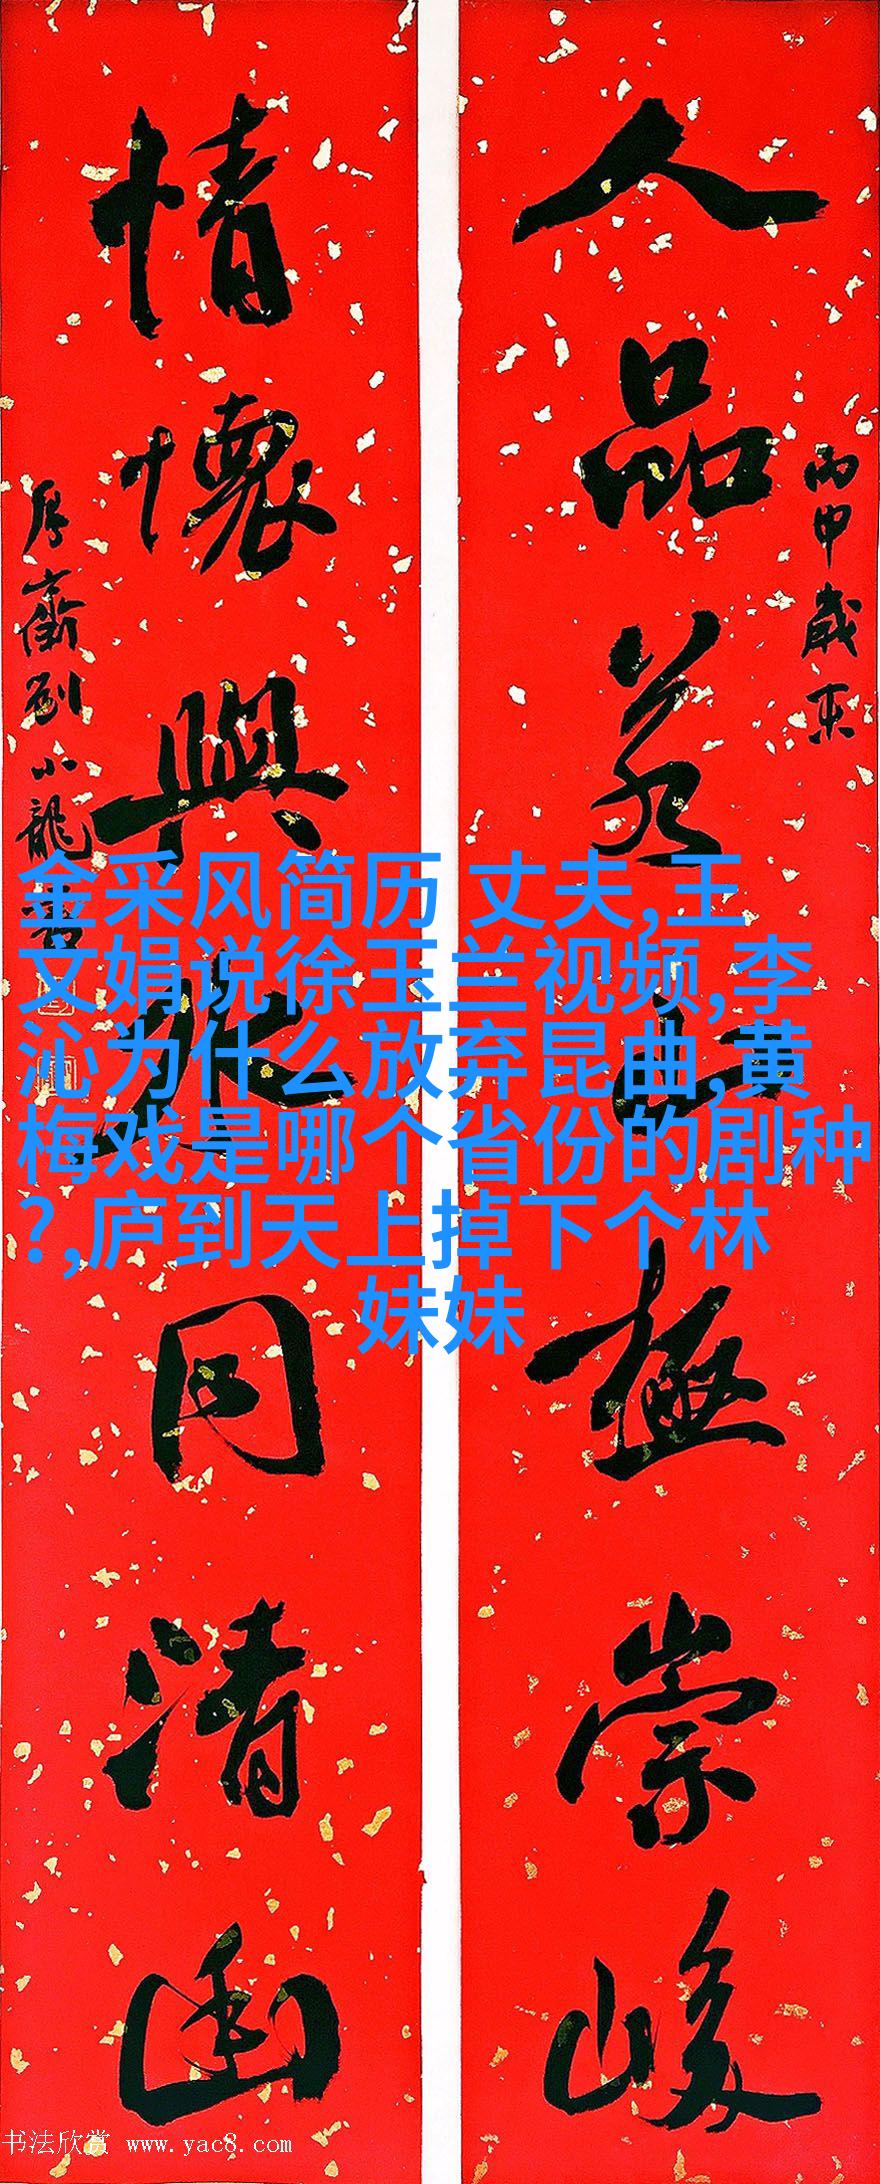 人品若山極崇峻
丙申歲末
情懷與水同清幽
厚齋劉小龍書
金采风简历 丈夫,王
文娟说徐玉兰视频,李
沁为什么放弃昆曲,黄
梅戏是哪个省份的剧种
?,庐到天上掉下个林
妹妹
书法欣赏 www.yac8.com